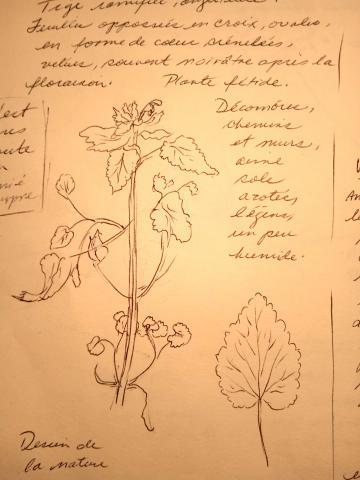 Tige ramifiée,
Feuilles opposées en croix, ovales,
en forme de cœur crénelées,
velues, souvent noirâtre après la
floraison. Plante fétide.
Décombres,
chemins
et murs,
aime
sols
azotés,
légères,
un peu
humide.
Dessin de
la nature